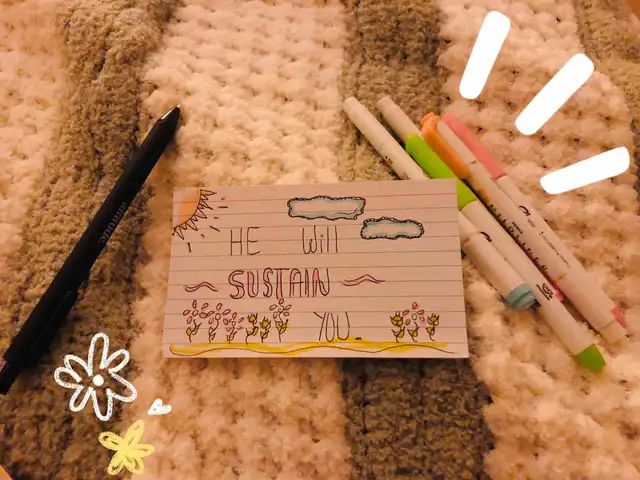 HE Will
SUSTAIN
YOU.